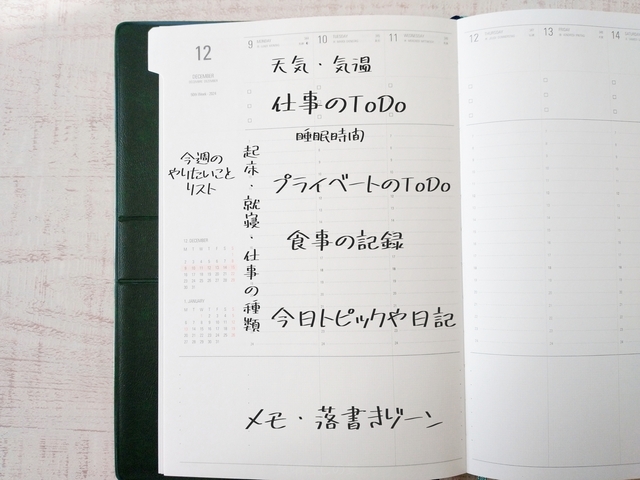 12
DECEMBER
9
10
11
12
13
14
天気・気温
仕事のToDo
睡眠時間
今週の
やりたいこと
リスト
起床・就寝・仕事の種類
プライベートのToDo
食事の記録
今日トピックや日記
メモ・落書きゾーン
12 DECEMBER
1 JANUARY